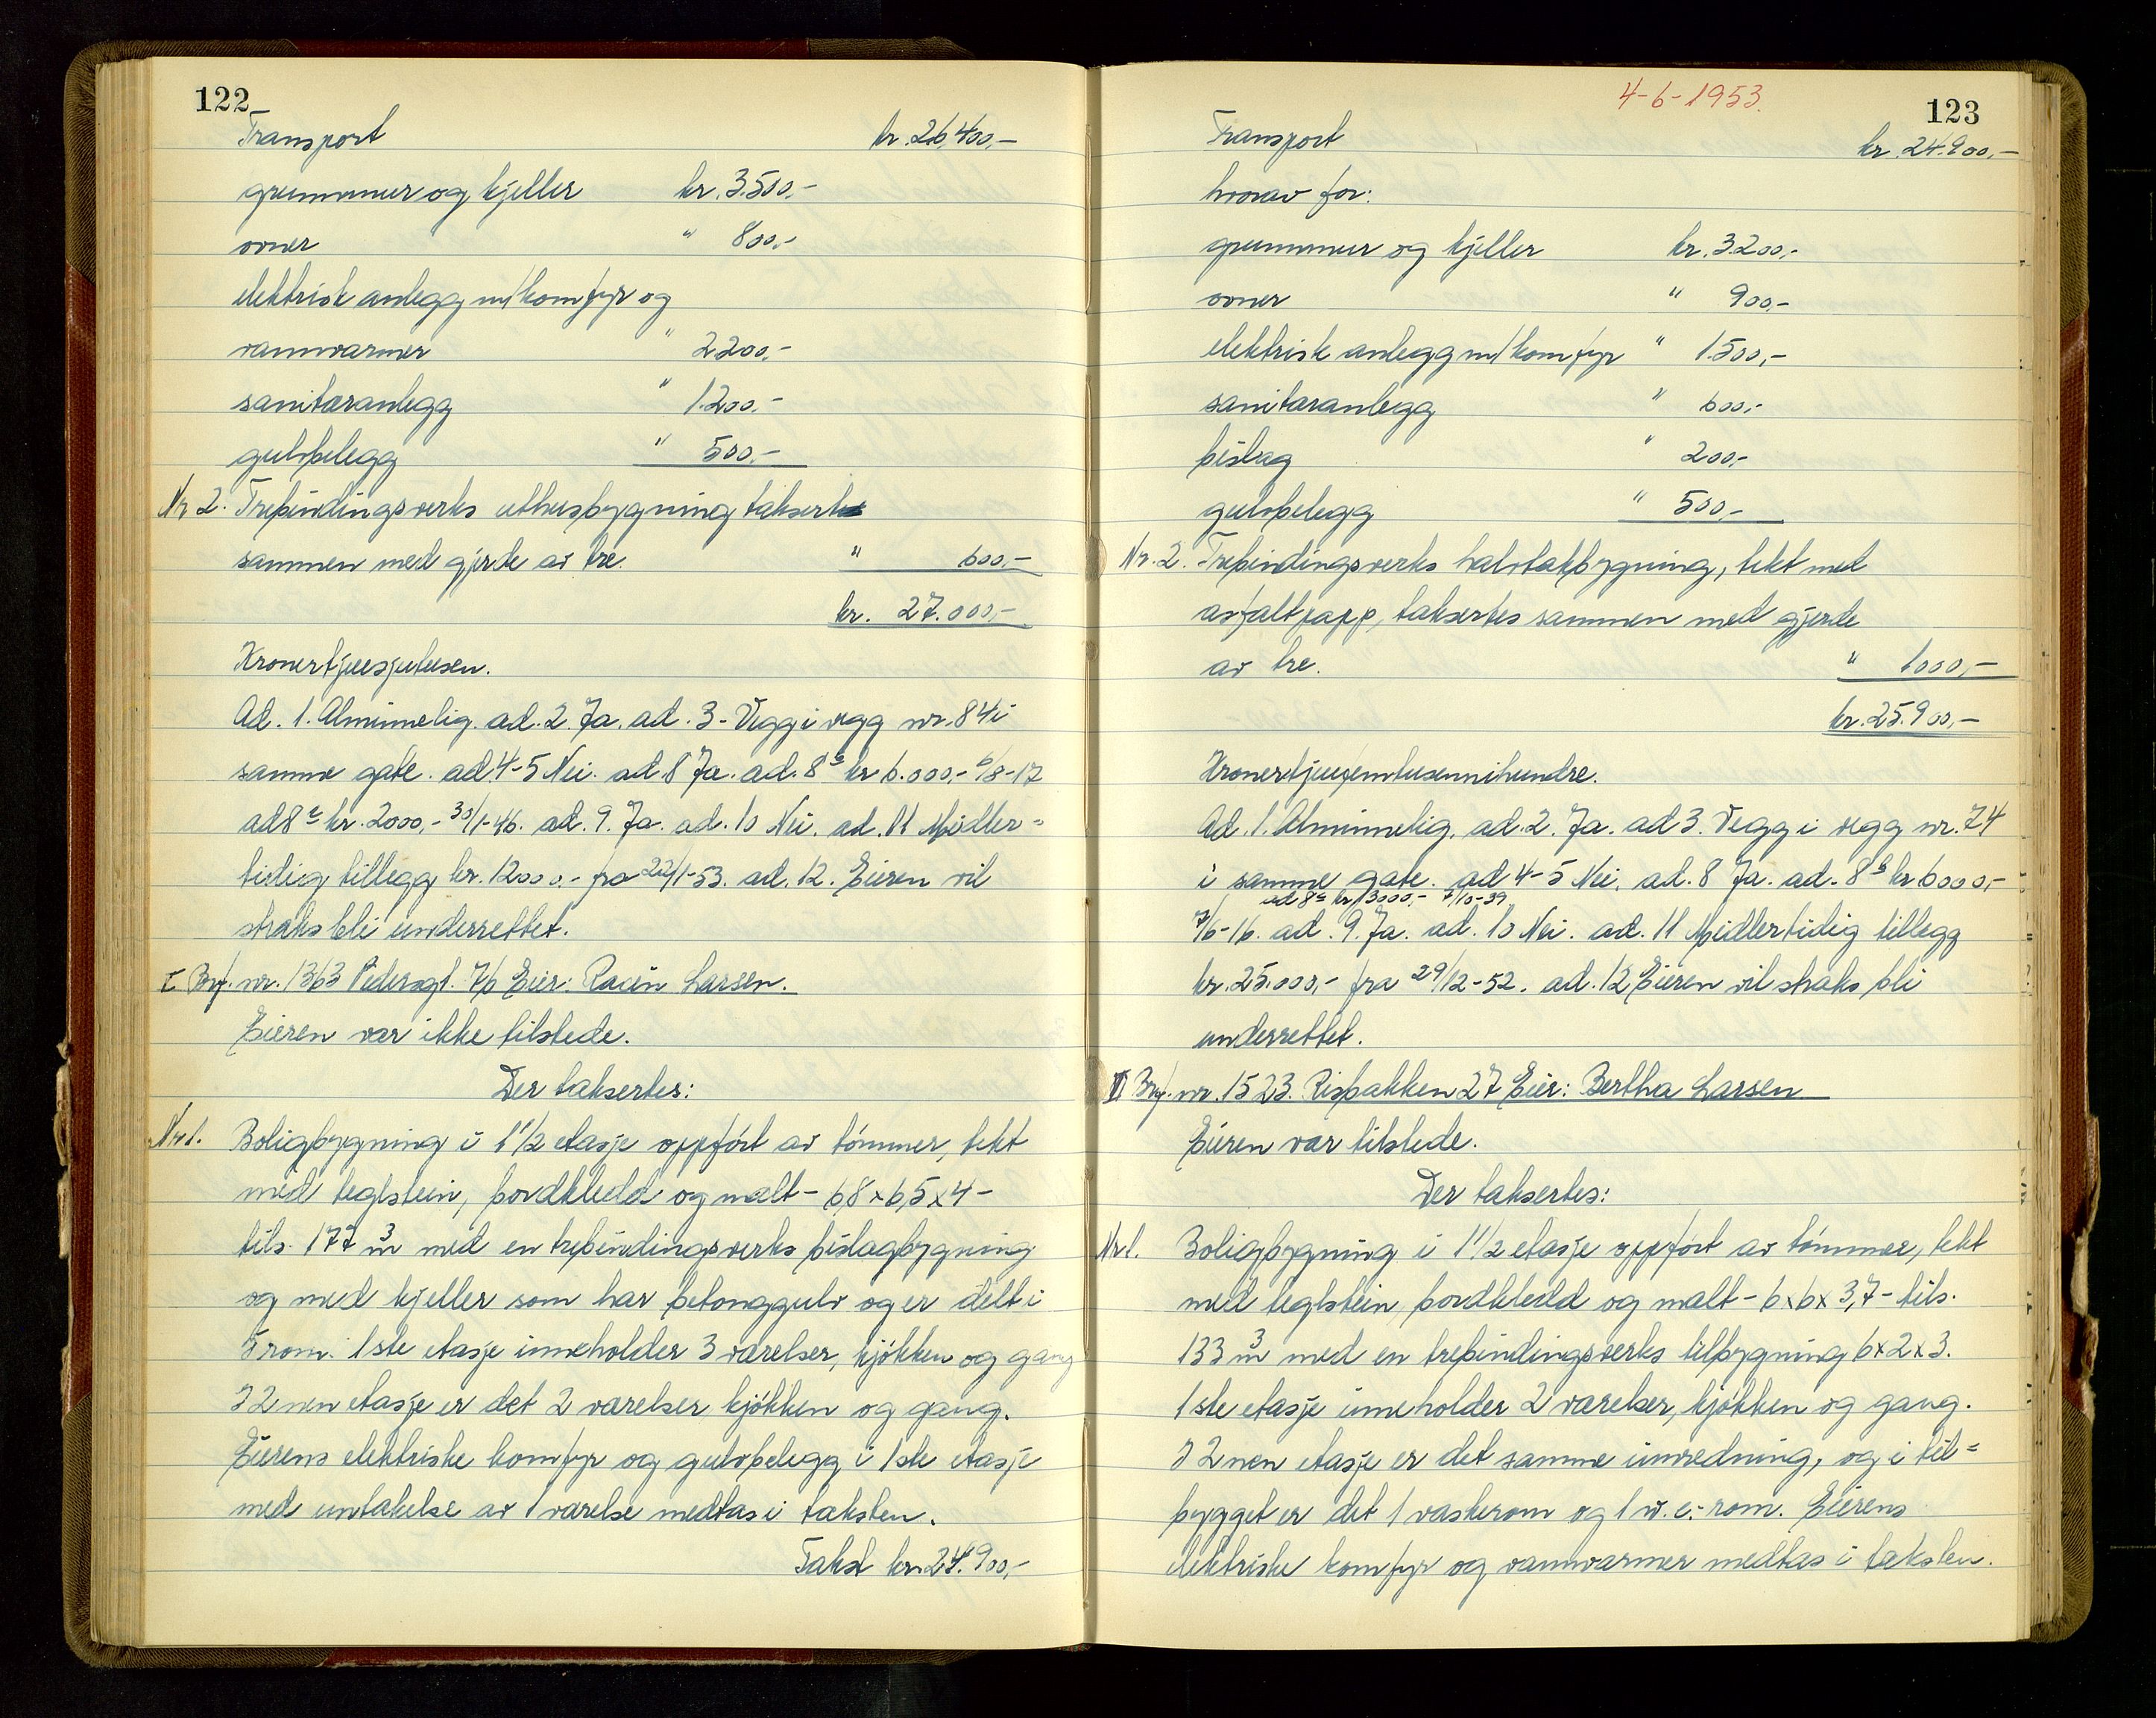 122
Transport kr. 26.400,-
grunnmur og kjeller kr. 3.500.-
ovner " 800.-
elektrisk anlegg m/komfyr og
vannvarmer " 2200.-
sanitæranlegg " 1.200.-
gulvbelegg " 500.-
Nr 2. Trebindingsverks uthusbygning takserte
sammen med gjerde av tre. " 600.-
kr. 27.000,-
Kronertjuesjutusen.
Ad. 1. Alminnelig. ad. 2. Ja. ad. 3 - Vegg i vegg nr. 84 i
samme gate. ad 4-5 Nei. ad. 8 Ja. ad. 8 b kr 6.000,- 6/8-17
ad 8 c kr. 2000,- 30/1-46. ad. 9. Ja. ad. 10 Nei. ad. 11 Midler=
tidig tillegg kr. 12000.- fra 22/1-53. ad. 12. Eieren vil
straks bli underrettet.
I Brf. nr. 1363 Pedersgt. 76 Eier: Racin Larsen.
Eieren var ikke tilstede.
Der taksertes:
Nr 1. Boligbygning i 1 1/2 etasje oppført av tømmer, tekt
med teglstein, bordkledd og malt - 6,8 x 6,5 x 4 -
tils. 177 m3 med en trebindingsverks bislagbygning
og med kjeller som har betonggulv og er delt i
7 rom. 1ste etasje inneholder 3 værelser, kjøkken og gang
I 2nen etasje er det 2 værelser kjøkken og gang.
Eierens elektriske komfyr og gulvbelegg i 1ste etasje
med untakelse av 1 værelse medtas i taksten.
Takst kr. 24.900,-
4-6-1953.
123
Transport kr. 24.900,-
hvorav for:
grunnmur og kjeller kr. 3.200,-
ovner " 900,-
elektrisk anlegg m/komfyr " 1.500,-
sanitæranlegg " 600,-
bislag " 200,-
gulvbelegg " 500,-
Nr. 2. Trebindingsverks halvtakbygning, tekt med
asfaltpapp, taksertes sammen med gjerde
av tre. " 1000,-
kr. 25.900,-
Kronertjuefemtusennihundre.
Ad. 1. Alminnelig. ad. 2. Ja. ad 3. Vegg i vegg nr. 74
i samme gate. ad 4-5 Nei. ad. 8 Ja. ad. 8 b kr 6000,-
ad 8 c kr. 3000,- 7/10-39
7/6-16. ad. 9. Ja. ad. 10 Nei. ad. 11 Midlertidig tillegg
kr. 25.000,- fra 29/12-52. ad. 12 Eieren vil straks bli
underrettet.
II Brf. nr. 1523. Risbakken 27 Eier: Bertha Larsen
Eieren var tilstede.
Der taksertes:
Nr 1. Boligbygning i 1 1/2 etasje oppført av tømmer, tekt
med teglstein, bordkledd og malt - 6 x 6 x 3,7 - tils.
133 m3 med en trebindingsverks tilbygning 6 x 2 x 3.
1ste etasje inneholder 2 værelser, kjøkken og gang.
I 2nen etasje er det samme innredning, og i til=
bygget er det 1 vaskerom og 1 w.c.-rom. Eierens
elektriske komfyr og vannvarmer medtas i taksten.